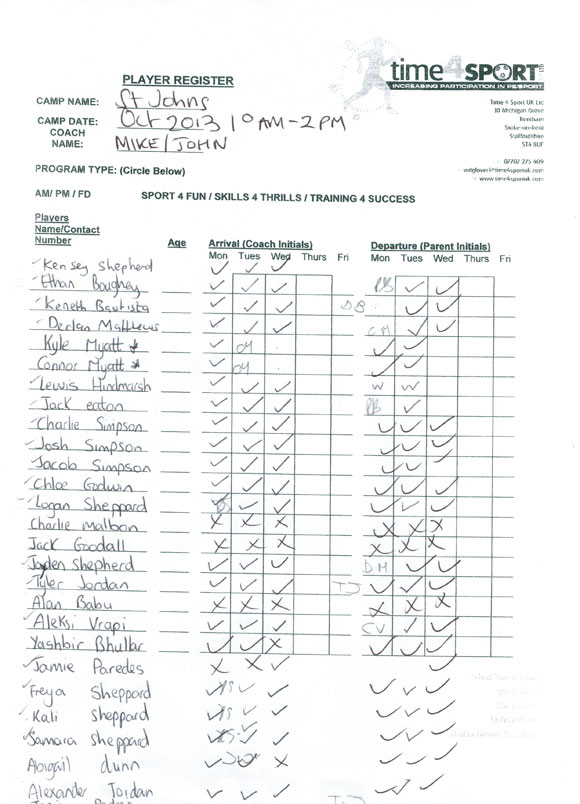 time4SPORT LTD
INCREASING PARTICIPATION IN PE/SPORT
PLAYER REGISTER
CAMP NAME: St Johns
CAMP DATE: Oct 2013 10AM-2PM
COACH NAME: MIKE/JOHN
Time 4 Sport UK Ltd
10 Michigan Grove
Trentham
Stoke-on-trent
Staffordshire
ST4 8UF
07707 275 409
PROGRAM TYPE: (Circle Below)
AM/ PM / FD SPORT 4 FUN / SKILLS 4 THRILLS / TRAINING 4 SUCCESS
Players
Name/Contact
Number Age Arrival (Coach Initials) Departure (Parent Initials)
Mon Tues Wed Thurs Fri Mon Tues Wed Thurs Fri
✓ Kensey Shepherd ✓ ✓ ✓
✓ Ethan Boughey ✓ ✓ ✓ ✓ ✓
✓ Keneth Bautista ✓ ✓ ✓ DB ✓ ✓
✓ Declan Matthews ✓ ✓ ✓ CM ✓ ✓
✓ Kyle Myatt ✓ ✓ ✓
Connor Myatt ✓ ✓ ✓
✓ Lewis Hindmarsh ✓ ✓ ✓ W W
✓ Jack eaton ✓ ✓ ✓ ✓
✓ Charlie Simpson ✓ ✓ ✓ ✓ ✓ ✓
✓ Josh Simpson ✓ ✓ ✓ ✓ ✓ ✓
✓ Jacob Simpson ✓ ✓ ✓ ✓ ✓ ✓
✓ Chloe Godwin ✓ ✓ ✓ ✓ ✓ ✓
✓ Logan Sheppard ✓ ✓ ✓ ✓ ✓
Charlie Malbon X X X X X X
Jack Goodall X X X X X X
✓ Jayden Shepherd ✓ ✓ ✓ DM ✓ ✓
✓ Tyler Jordan ✓ ✓ ✓ TJ ✓ ✓ ✓
Alan Babu X X X X X X
✓ Aleksi Vrapi ✓ ✓ ✓ CV ✓ ✓
Yashbir Bhullar ✓ ✓ X ✓ ✓ ✓
✓ Jamie Paredes X X ✓ ✓
✓ Freya Sheppard ✓ ✓ ✓ ✓ ✓
✓ Kali Sheppard ✓ ✓ ✓ ✓ ✓
✓ Samara Sheppard ✓ ✓ ✓ ✓ ✓
Abigail dunn ✓ X ✓ ✓ ✓
Alexander Jordan ✓ ✓ ✓ TJ ✓ ✓